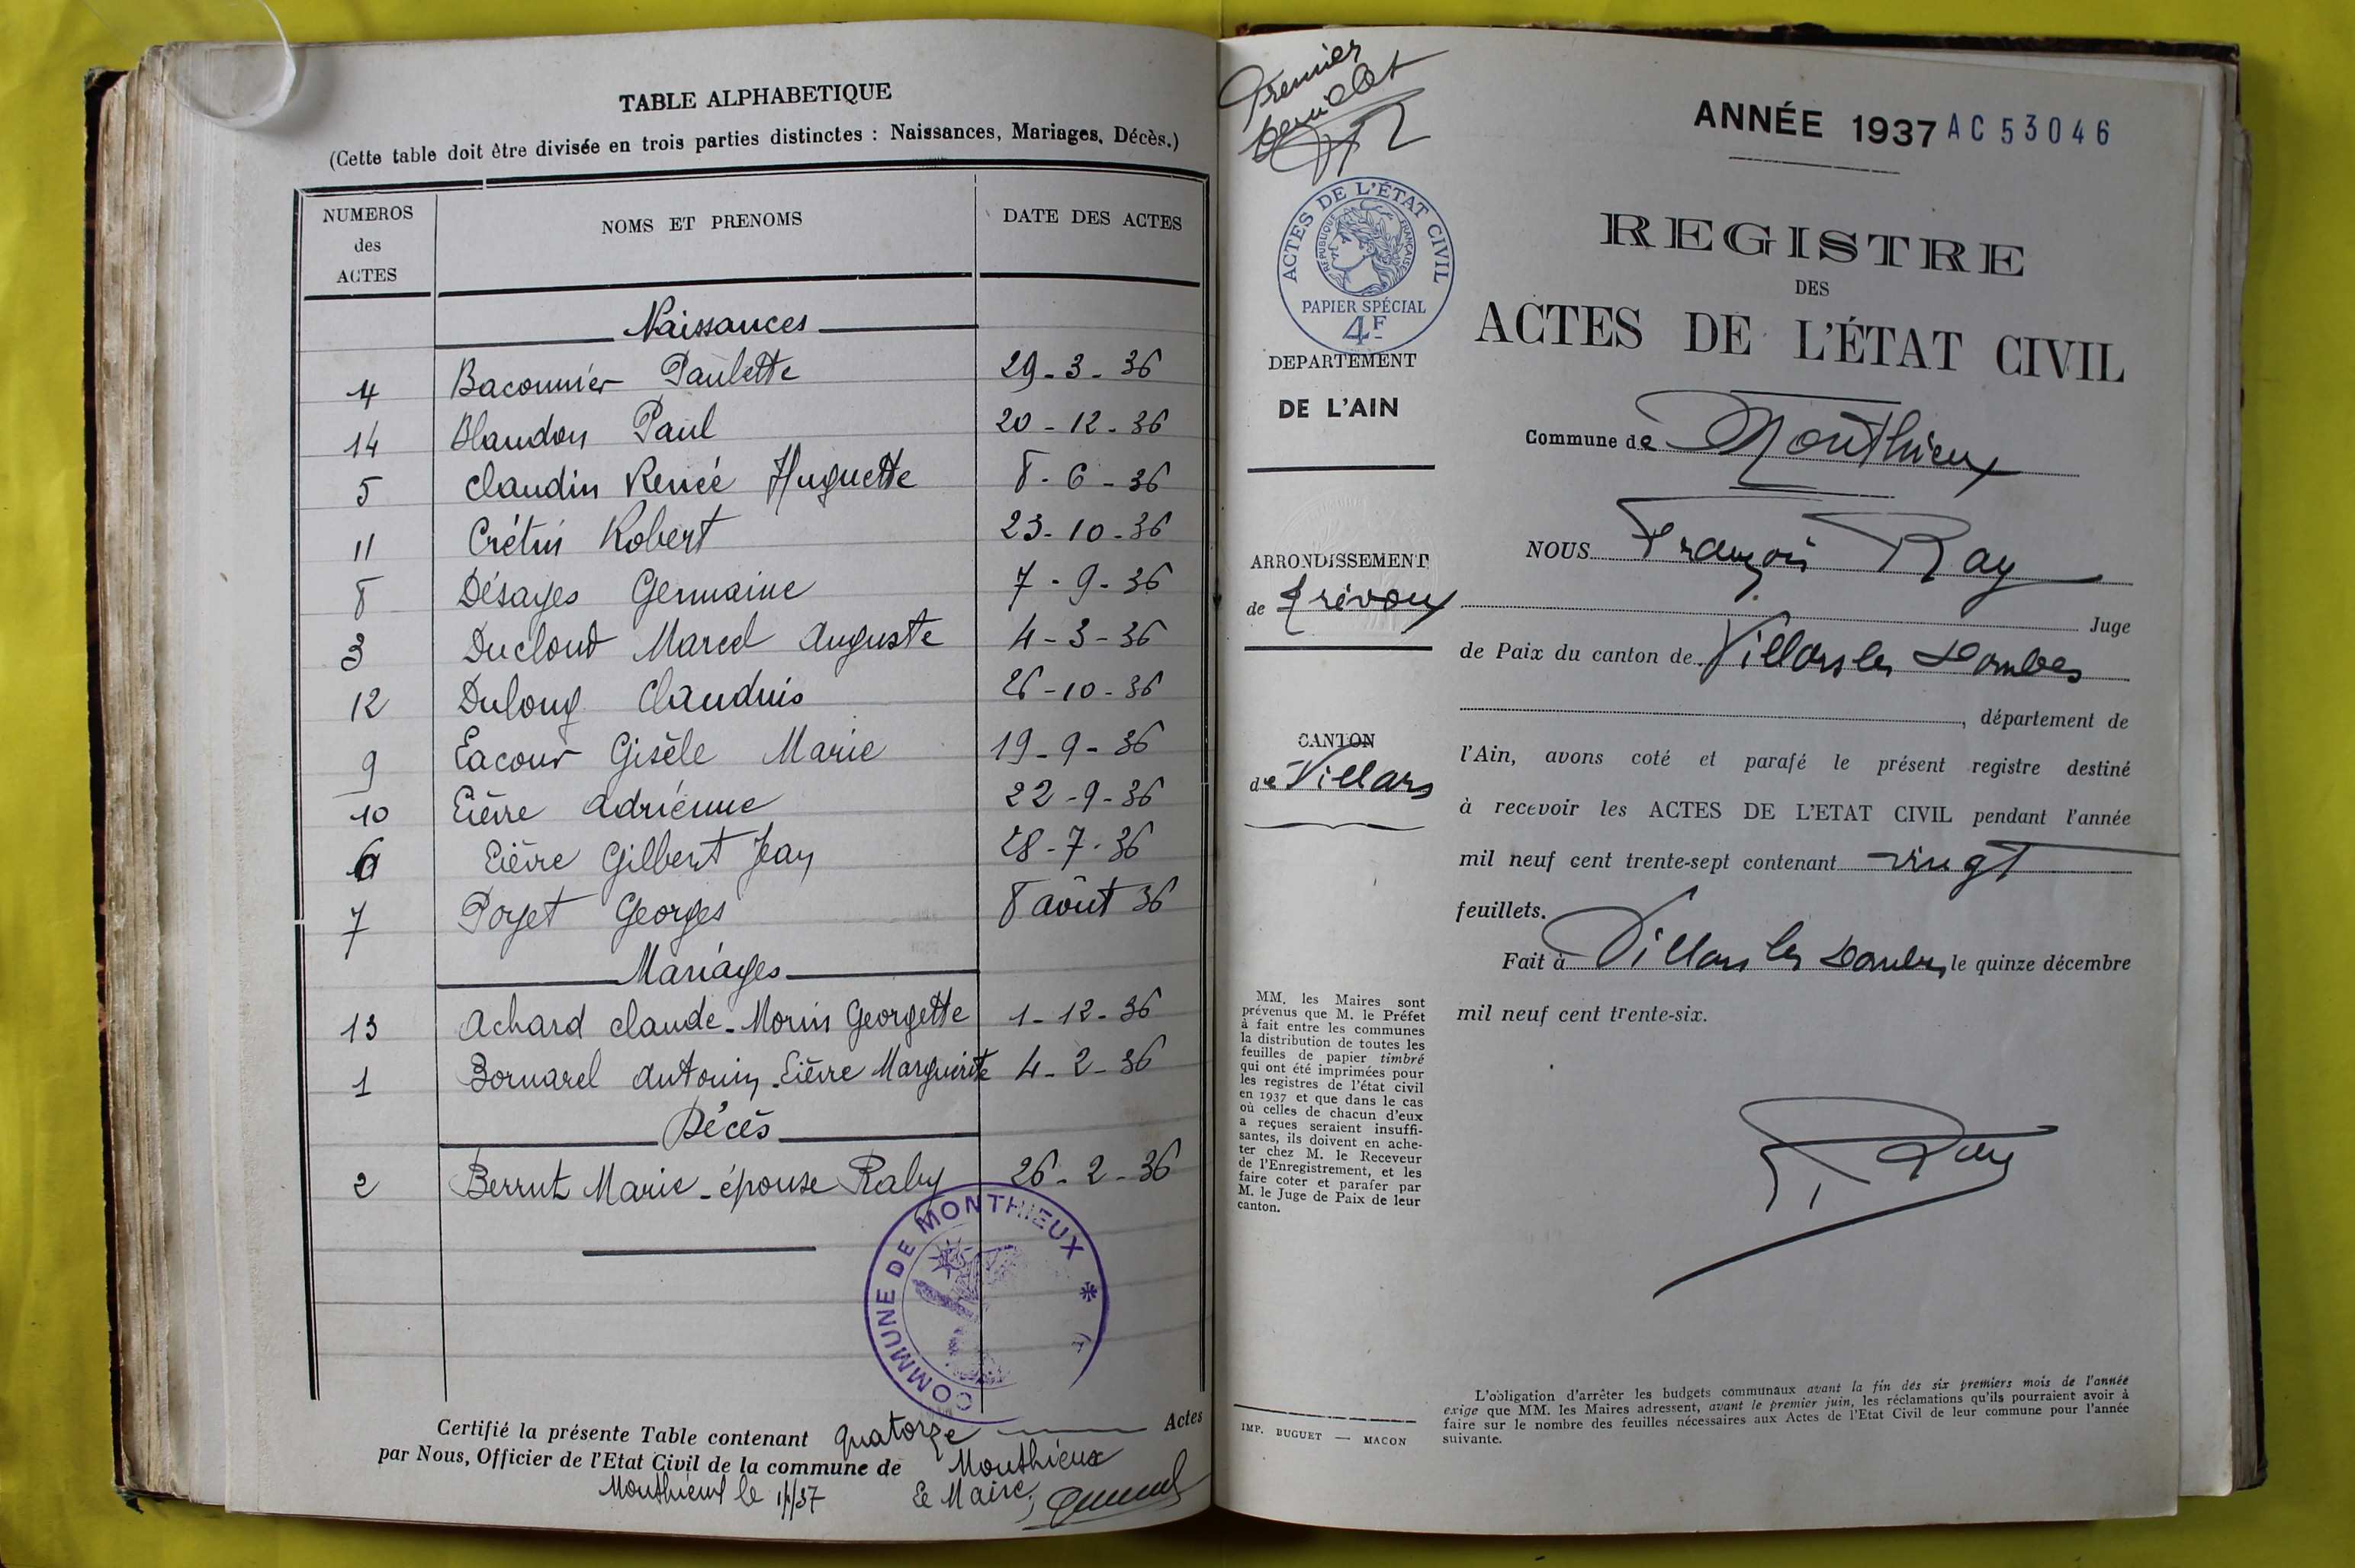 TABLE ALPHABETIQUE
(Cette table doit être divisée en trois parties distinctes : Naissances, Mariages, Décès.)
NUMEROS des ACTES | NOMS ET PRENOMS | DATE DES ACTES
Naissances
4 Baconnier Paulette 29-3-36
14 Blandon Paul 20-12-36
5 Claudin Renée Huguette 8-6-36
11 Crétin Robert 23-10-36
8 Désayes Germaine 7-9-36
3 Ducloud Marcel Auguste 4-3-36
12 Dulong Claudius 26-10-36
9 Lacour Gisèle Marie 19-9-36
10 Lièvre Adrienne 22-9-36
6 Lièvre Gilbert Jean 28-7-36
7 Poyet Georges 8 août 36
Mariages
13 Achard Claude - Morin Georgette 1-12-36
1 Bornarel Antonin - Lièvre Marguerite 4-2-36
Décès
2 Berrut Marie - épouse Raby 26-2-36
COMMUNE DE MONTHIEUX
Certifié la présente Table contenant quatorze Actes
par Nous, Officier de l'Etat Civil de la commune de Monthieux
Monthieux le 1/1/37 Le Maire,
Premier
feuillet
ANNÉE 1937 AC 53046
ACTES DE L'ÉTAT CIVIL
RÉPUBLIQUE FRANÇAISE
PAPIER SPÉCIAL
4F
DEPARTEMENT
DE L'AIN
ARRONDISSEMENT
de Trévoux
CANTON
de Villars
MM. les Maires sont
prévenus que M. le Préfet
à fait entre les communes
la distribution de toutes les
feuilles de papier timbré
qui ont été imprimées pour
les registres de l'état civil
en 1937 et que dans le cas
où celles de chacun d'eux
a reçues seraient insuffi-
santes, ils doivent en ache-
ter chez M. le Receveur
de l'Enregistrement, et les
faire coter et parafer par
M. le Juge de Paix de leur
canton.
IMP. BUGUET — MACON
REGISTRE
DES
ACTES DE L'ÉTAT CIVIL
Commune de Monthieux
NOUS François Ray
Juge
de Paix du canton de Villars les Dombes
, département de
l'Ain, avons coté et parafé le présent registre destiné
à recevoir les ACTES DE L'ETAT CIVIL pendant l'année
mil neuf cent trente-sept contenant vingt
feuillets.
Fait à Villars les Dombes le quinze décembre
mil neuf cent trente-six.
Ray
L'obligation d'arrêter les budgets communaux avant la fin des six premiers mois de l'année
exige que MM. les Maires adressent, avant le premier juin, les réclamations qu'ils pourraient avoir à
faire sur le nombre des feuilles nécessaires aux Actes de l'Etat Civil de leur commune pour l'année
suivante.